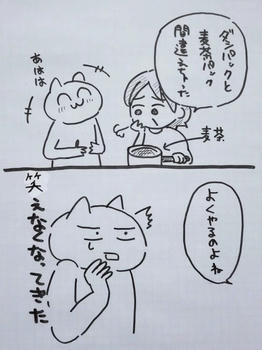 ダシパックと
麦茶パック
間違えちゃった
麦茶
あはは
よくやるのよね
笑えなくなってきた